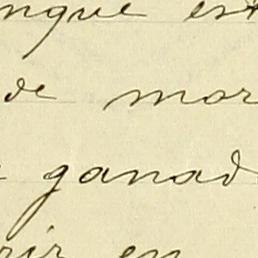 nque est
de mor
ganad
rir en